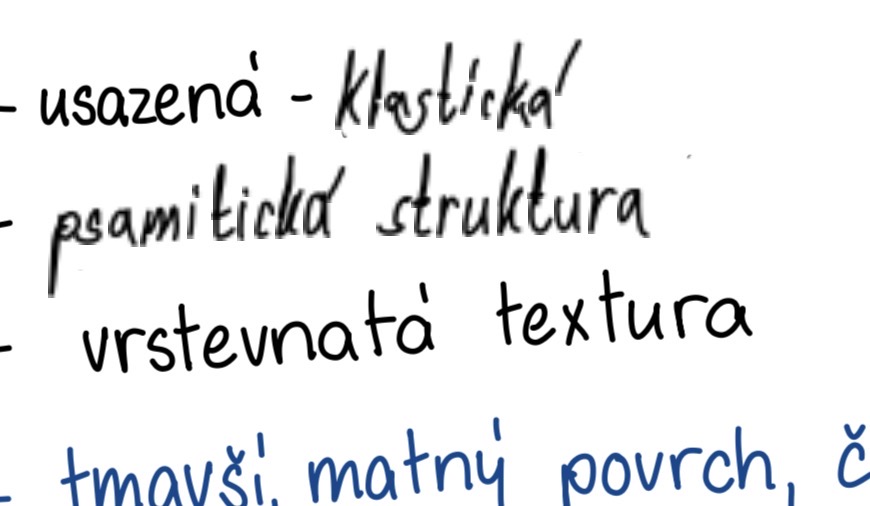 - usazená - klastická
- psamitická struktura
- vrstevnatá textura
- tmavší, matný povrch, č